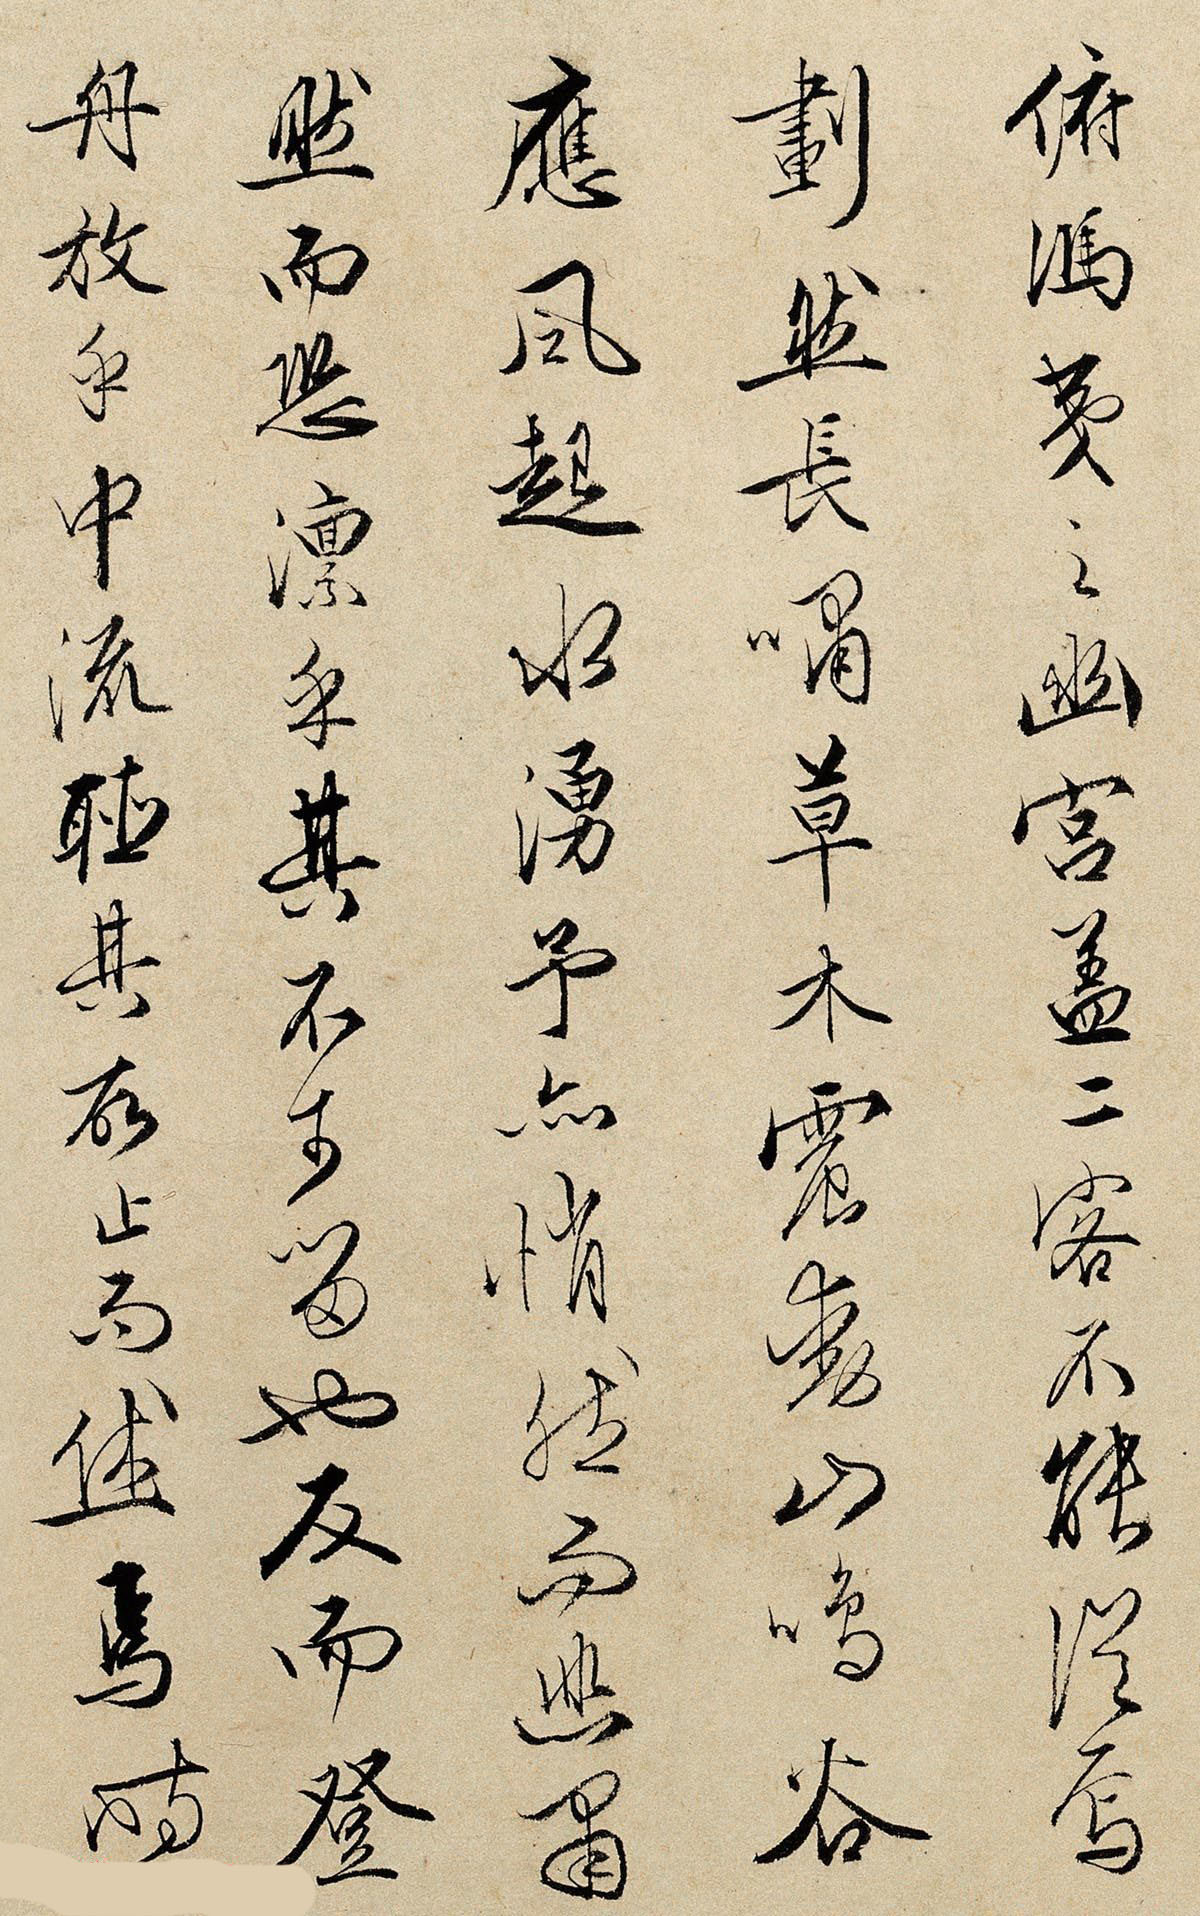 俯馮夷之幽宮盖二客不能從焉
劃然長嘯草木震動山鳴谷
應風起水湧予亦悄然而悲肅
然而恐凜乎其不可留也反而登
舟放乎中流聽其所止而休焉時